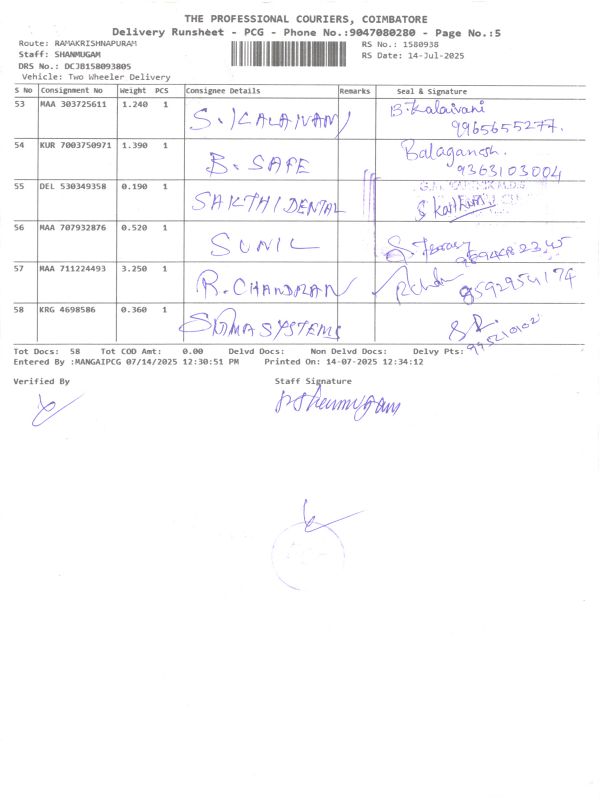 THE PROFESSIONAL COURIERS, COIMBATORE
Delivery Runsheet - PCG - Phone No.:9047080280 - Page No.:5
Route: RAMAKRISHNAPURAM RS No.: 1580938
Staff: SHANMUGAM RS Date: 14-Jul-2025
DRS No.: DCJB158093805
Vehicle: Two Wheeler Delivery
S No Consignment No Weight PCS Consignee Details Remarks Seal & Signature
53 MAA 303725611 1.240 1 S. KALAIVANI B. Kalaivani
9965655277.
54 KUR 7003750971 1.390 1 B. SAFE Balaganesh.
9363103004
55 DEL 530349358 0.190 1 SAKTHI DENTAL
56 MAA 707932876 0.520 1 SUNIL
57 MAA 711224493 3.250 1 R. CHANDRAN 8592954174
58 KRG 4698586 0.360 1 SYSTEMS
Tot Docs: 58 Tot COD Amt: 0.00 Delvd Docs: Non Delvd Docs: Delvy Pts:
Entered By :MANGAIPCG 07/14/2025 12:30:51 PM Printed On: 14-07-2025 12:34:12
Verified By Staff Signature